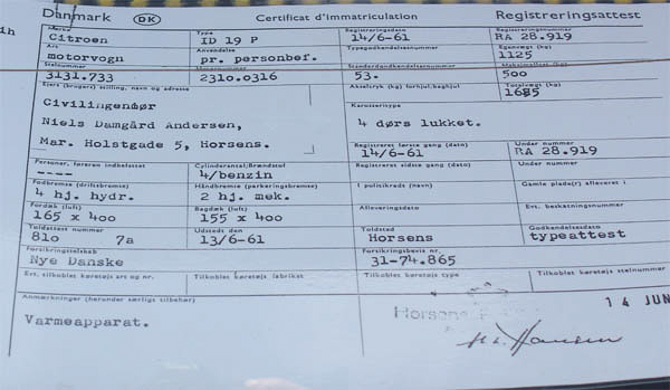 Danmark DK Certificat d'immatriculation Registreringsattest
1h
Mærke Type Registreringsdato Registreringsnummer
Citroen ID 19 P 14/6-61 RA 28.919
Art Anvendelse Typegodkendelsesnummer Egenvægt (kg)
motorvogn pr. personbef. 1125
Stelnummer Standardgodkendelsesnummer
3131.733 2310.0316 53. 500
Ejers (brugers) stilling, navn og adresse Akseltryk (kg) forhjul/baghjul Totalvægt (kg)
Civilingeniør 1685
Karosseritype
Niels Damgård Andersen, 4 dørs lukket.
Mar. Holstgade 5, Horsens.
Registreret første gang (dato) Under nummer
14/6-61 RA 28.919
Personer, føreren indbefattet Cylinderantal/Brændstof Registreret sidste gang (dato) Under nummer
---- 4/benzin
Fodbremse (driftsbremse) Håndbremse (parkeringsbremse) I politikreds (navn) Gamle plade(r) afleveret i
4 hj. hydr. 2 hj. mek.
Fordæk (luft) Bagdæk (luft) Afleveringsdato Evt. beskatningsnummer
165 x 400 155 x 400
Toldattest nummer Udstedt den Toldsted Godkendelsesdato
810 7a 13/6-61 Horsens typeattest
Forsikringsselskab Forsikringsbevis nr.
Nye Danske 31-74.865
Evt. tilkoblet køretøjs art og nr. Tilkoblet køretøjs fabrikat Tilkoblet køretøjs type Tilkoblet køretøjs stelnummer
Anmærkninger (herunder særligt tilbehør)
14 JUN
Varmeapparat. Horsens
Hansen